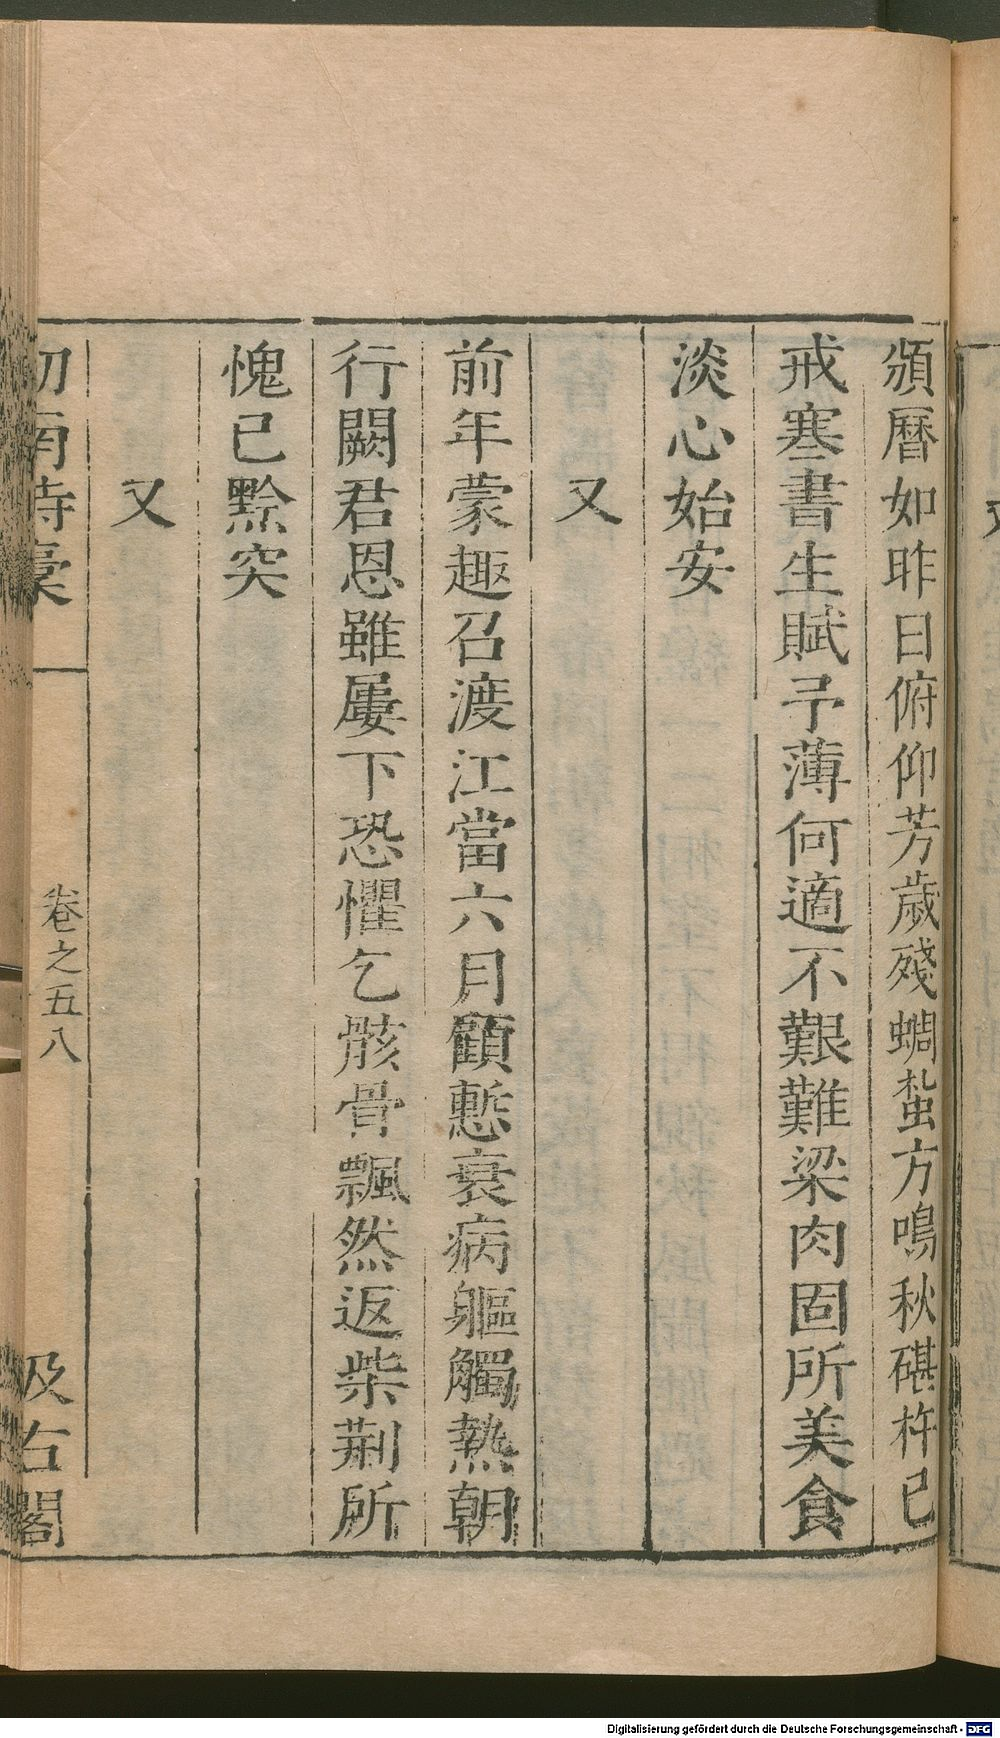 頒曆如昨日俯仰芳歲殘蜩蜇方鳴秋碪杵已
戒寒書生賦予薄何適不艱難粱肉固所美食
淡心始安
又
前年蒙趣召渡江當六月顧慙衰病軀觸熱朝
行闕君恩雖屢下恐懼乞骸骨飄然返柴荆所
愧已黔突
又
卷之五八
汲古閣
Digitalisierung gefördert durch die Deutsche Forschungsgemeinschaft - DFG